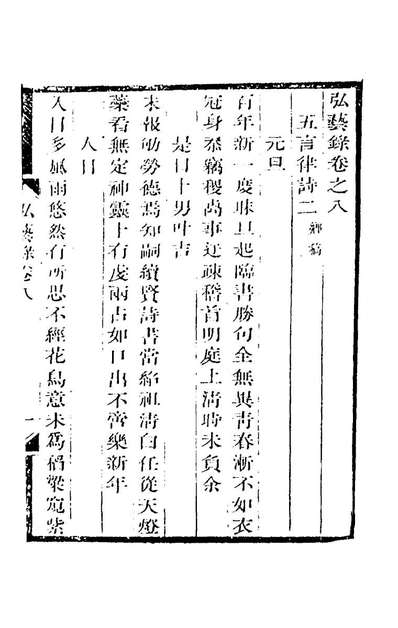 弘藝錄卷之八
五言律詩二 鄉稿
元旦
百年新一度昧旦起臨書勝句全無異靑春漸不如衣
冠身忝竊稷卨事迂疎稽首明庭上淸時未負余
是日卜男叶吉
未報劬勞德焉知嗣續賢詩書當紹祖淸白任從天燈
蘂看無定神靈卜有虔兩占如口出不啻樂新年
人日
人日多風雨悠然有所思不經花鳥意未爲稻粱寬紫
弘藝錄卷八
一